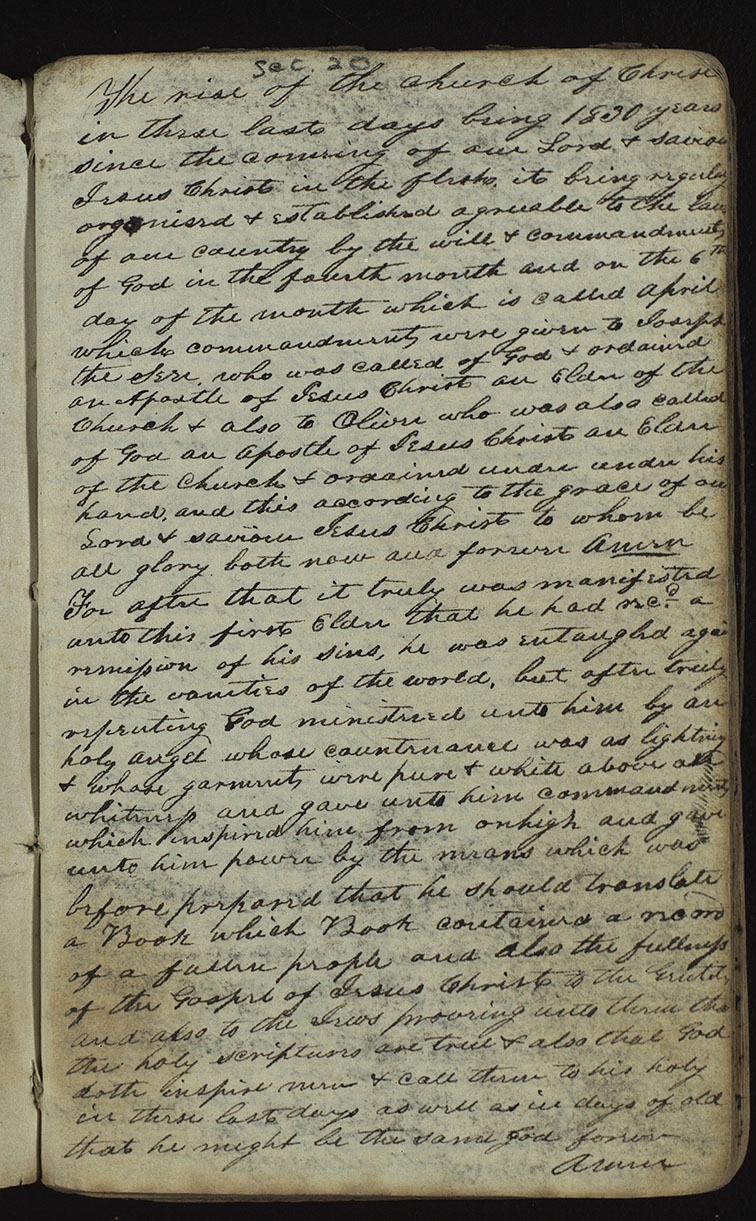 Sec. 20
The rise of the church of Christ
in these last days being 1830 years
since the comeing of our Lord & saviou
Jesus Christ in the flesh, it being regular
organised & established agreeable to the laws
of our country by the will & commandments
of God in the fourth month and on the 6th
day of the month which is called April
which commandments were given to Joseph
the Seer, who was called of God & ordained
an Apostle of Jesus Christ an Elder of the
Church & also to Oliver who was also called
of God an Apostle of Jesus Christ an Elder
of the Church & ordained under under his
hand, and this according to the grace of our
Lord & saviour Jesus Christ to whom be
all glory both now and forever Amen
For after that it truly was manifested
unto this first Elder that he had recd. a
remission of his sins, he was entangled agai
in the vanities of the world, but after truly
repenting God ministered unto him by an
holy angel whose countenance was as lightning
& whose garments were pure & white above all
whiteness and gave unto him commandments
which inspired him from on high and gave
unto him power by the means which was
before prepared that he should translate
a Book which Book contained a record
of a fallen people and also the fullness
of the Gospel of Jesus Christ to the Gentiles
and also to the Jews proveing unto them tha
the holy scriptures are true & also that God
doth inspire men & call them to his holy
in these last days as well as in days of old
that he might be the same God forever
Amen